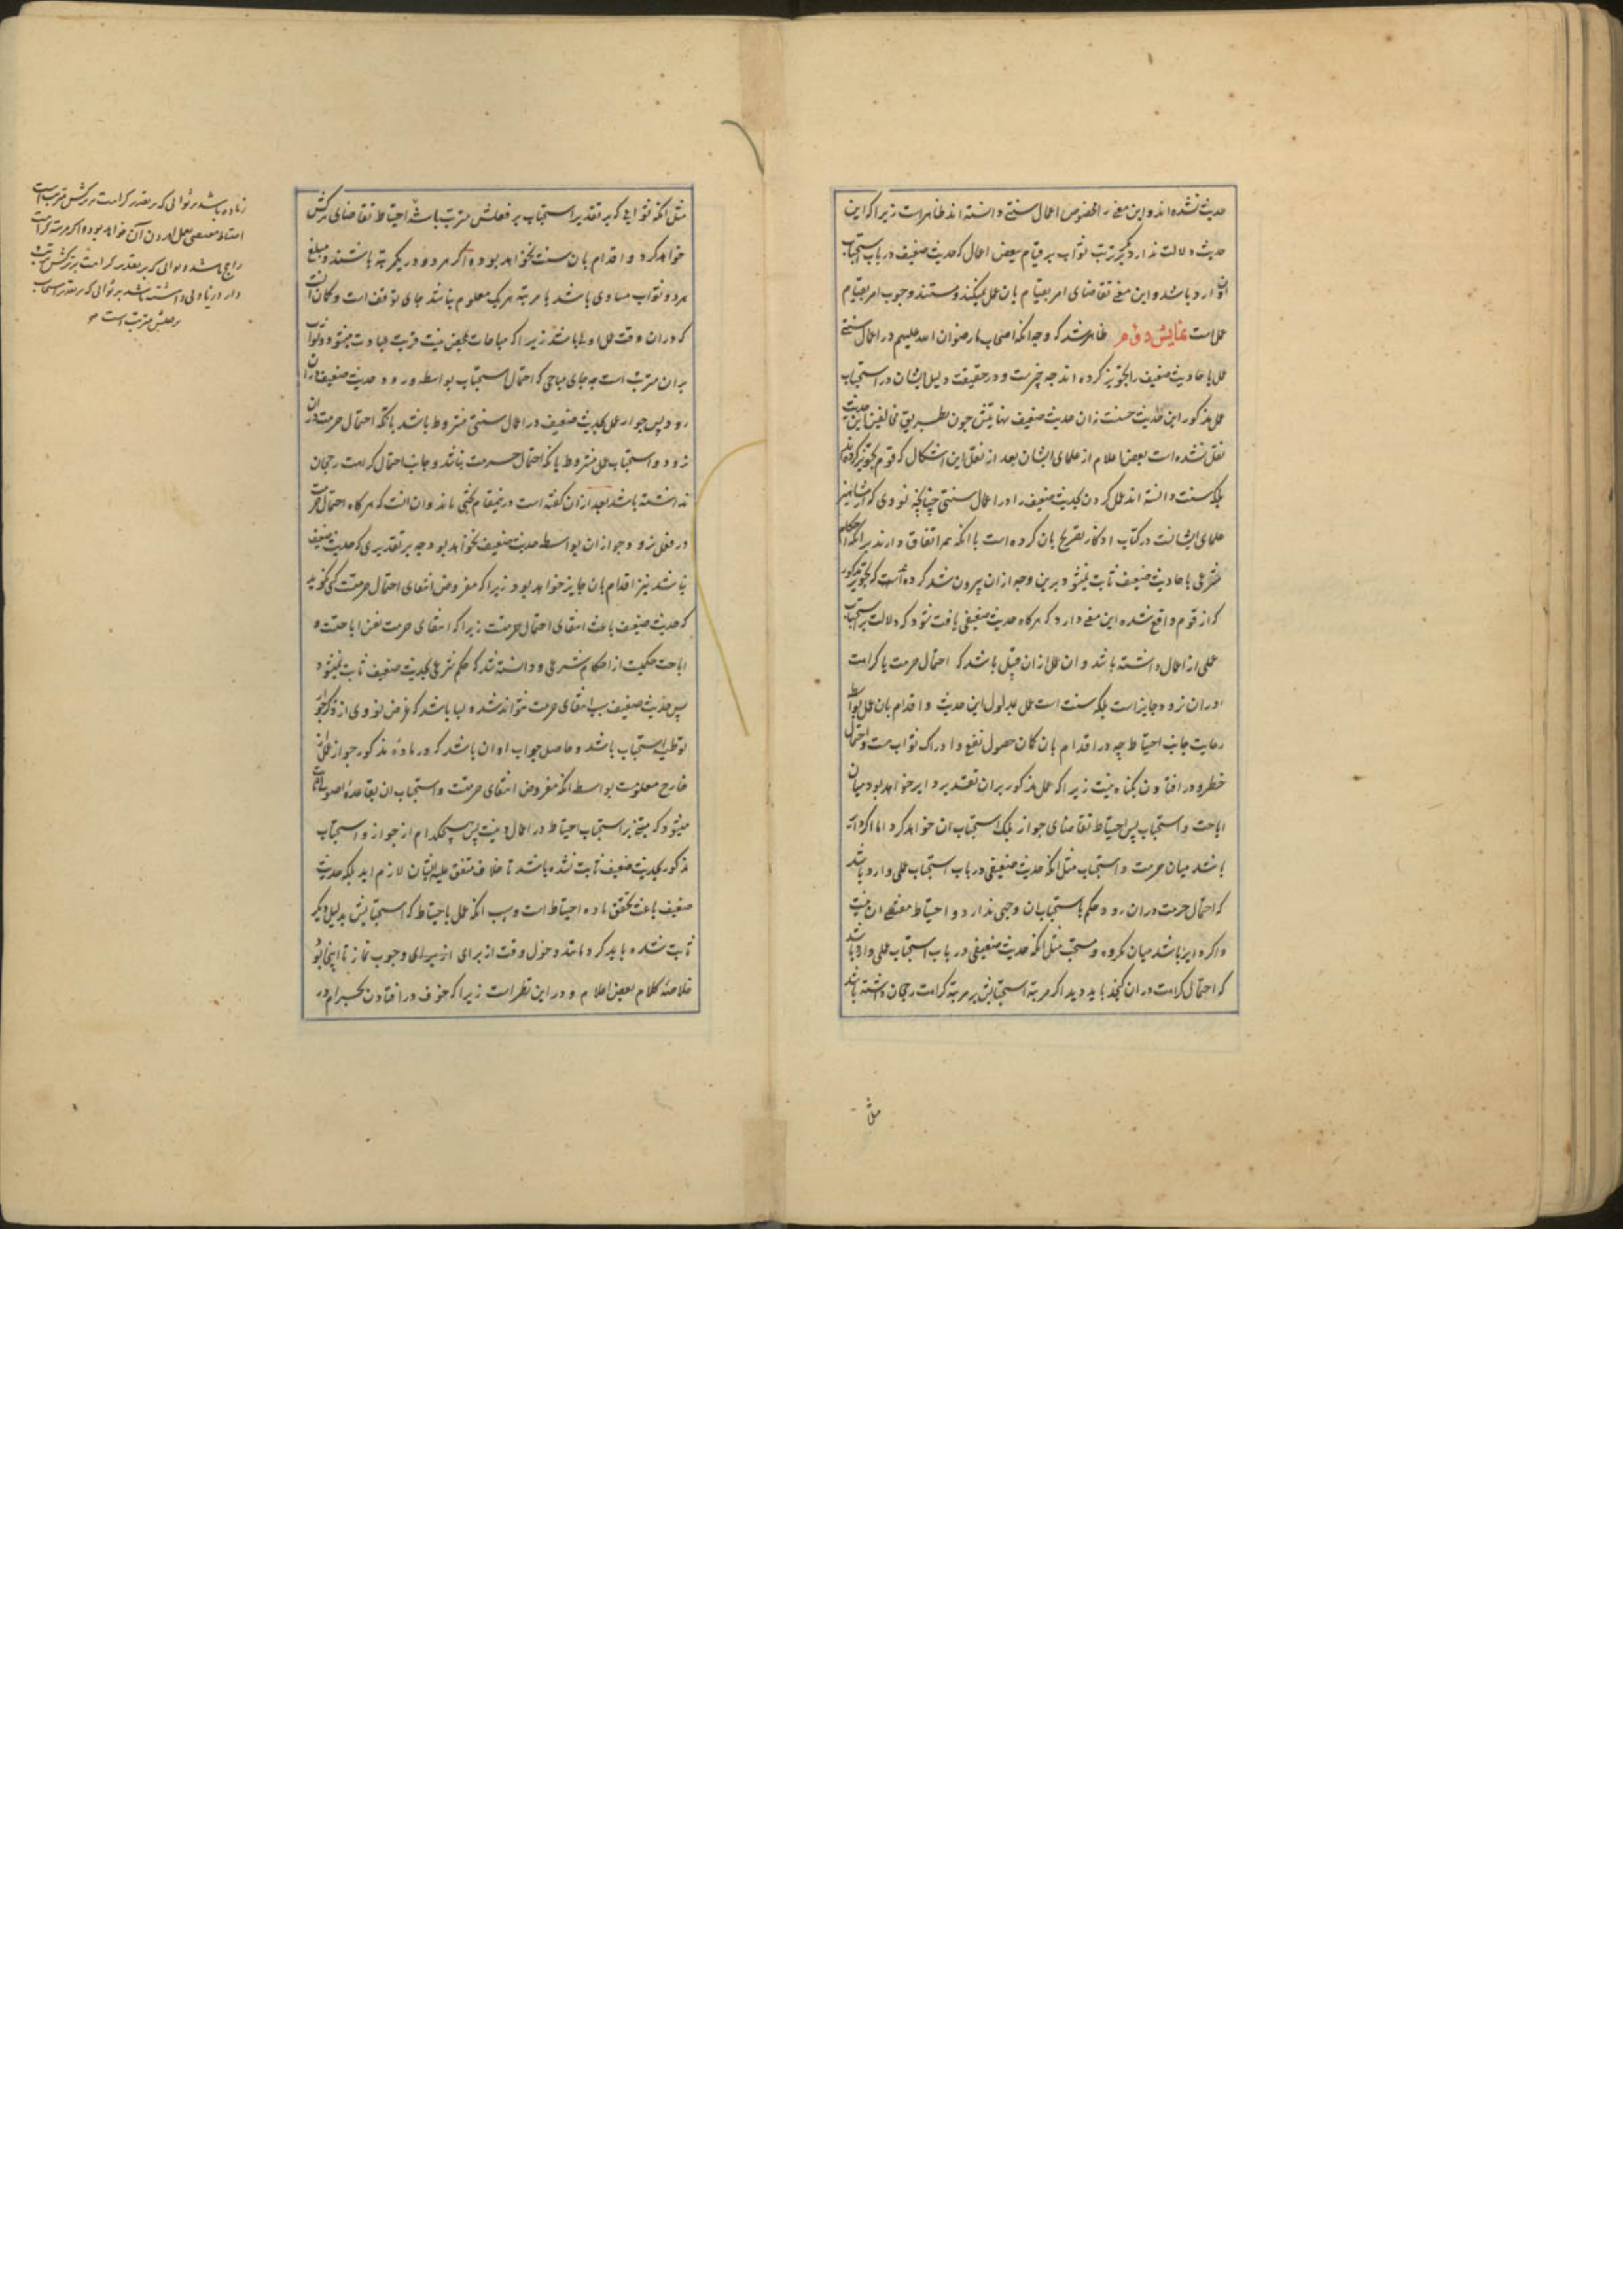 حدیث نشده اند و این معنی را مخصوص اعمال سنتی دانسته اند ظاهر است زیرا که این
حدیث دلالت ندارد مگر بر ترتب ثواب بر قیام ببعض اعمال که حدیث ضعیف در باب استحباب
آن وارد باشد و این معنی تقاضای امر بقیام بان عمل نمیکند و مستند وجوب امر بقیام
عمل است نمایش دوم ظاهر شد که وجه انکه اصحاب ما رضوان الله علیهم در اعمال سنتی
عمل باحادیث ضعیف را تجویز کرده اند چه چیزست و در حقیقت دلیل ایشان در استحباب
عمل مذکور این حدیث حسنست نه ان حدیث ضعیف نهایتش چون بطریق مخالفین این حدیث
نقل نشده است بعض اعلام از علمای ایشان بعد از نقل این اشکال که قوم تجویز کرده اند
بلکه سنت دانسته اند عمل کردن بحدیث ضعیف را در اعمال سنتی چنانچه نووی که از مشاهیر
علمای ایشانست در کتاب اذکار تصریح بان کرده است با انکه هم اتفاق دارند بر انکه احکام
شرعی باحادیث ضعیف ثابت نمیشود برین وجه ازان بیرون شد کرده است که تجویز مذکور
که از قوم واقع شده این معنی دارد که هر کاه حدیث ضعیفی یافت شود که دلالت بر استحباب
عملی از اعمال داشته باشد و ان عمل ازان قبیل باشد که احتمال حرمت یا کراهت
دران نرود جایزاست بلکه سنت است عمل بمدلول این حدیث و اقدام بان عمل بواسطه
رعایت جانب احتیاط چه در اقدام بان کمان حصول نفع و ادراک ثواب هست و احتمال
خطر و در افتادن بکناه نیست زیرا که عمل مذکور بران تقدیر دایر خواهد بود میان
اباحت و استحباب پس احتیاط تقاضای جواز بلکه استحباب ان خواهد کرد اما اکر دایر
باشد میان حرمت و استحباب مثل انکه حدیث ضعیفی در باب استحباب عملی وارد باشد
که احتمال حرمت دران رود حکم باستحباب ان وجهی ندارد و احتیاط مقتضی ان نیست
و اکر دایر باشد میان مکروه و مستحب مثل انکه حدیث ضعیفی در باب استحباب عملی وارد باشد
که احتمال کراهت دران کنجد باید دید اکر مرتبه استحبابش بر مرتبه کراهت رجحان داشته باشد
مثل
مثل انکه ثوابی که بر تقدیر استحباب بر فعلش مترتب باشد احتیاط تقاضای ترکش
خواهد کرد و اقدام بان سنت نخواهد بود و اکر هر دو در یکمرتبه باشند و مبلغ
هر دو ثواب مساوی باشد یا مرتبه هر یک معلوم نباشد جای توقف است و کمان آنست
که دران وقت عمل اولی باشد زیرا که مباحات بمحض نیت قربت عبادت میشود و ثواب
بران مترتب است چه جای مباحی که احتمال استحباب بواسطه ورود حدیث ضعیف دران
رود پس جواز عمل بحدیث ضعیف در اعمال سنتی مشروط باشد بانکه احتمال حرمت دران
نرود و استحباب عمل مشروط بانکه احتمال حرمت نباشد و جانب احتمال کراهت رجحان
نداشته باشد بعد ازان کفته است درینمقام بحثی ماند و ان انست که هر کاه احتمال حرمت
در فعلی نرود جواز ان بواسطه حدیث ضعیف نخواهد بود چه بر تقدیری که حدیث ضعیف
نباشد نیز اقدام بان جایز خواهد بود زیرا که مفروض انتفای احتمال حرمتست کی کوید
که حدیث ضعیف باعث انتفای احتمال حرمتست زیرا که انتفای حرمت نفس اباحتست و
اباحت حکمیست از احکام شرعی و دانسته شد که حکم شرعی بحدیث ضعیف ثابت نمیشود
پس حدیث ضعیف سبب انتفای حرمت نتواند شد و بسا باشد که غرض نووی از ذکر جواز
توطیه استحباب باشد و حاصل جواب او ان باشد که در ماده مذکور جواز عمل از
خارج معلومست بواسطه انکه مفروض انتفای حرمتست و استحباب ان بقاعده اصول ثابت
میشود که مبتنی بر استحباب احتیاط در اعمال دینیست پس هیچکدام از جواز و استحباب
مذکور بحدیث ضعیف ثابت نشده باشد تا خلاف متفق علیه ایشان لازم اید بلکه حدیث
ضعیف باعث تحقق ماده احتیاط است و سبب انکه عمل باحتیاط که استحبابش بدلیل دیکر
ثابت شده باید کرد مانند دخول وقت از برای وجوب نماز تا اینجا بود
خلاصه کلام بعض اعلام و در این نظر است زیرا که خوف در افتادن بحرام در
زیاده باشد بر ثوابی که بر تقدیر کراهت بر ترکش مترتب است
احتیاط مقتضی عمل اوردن آن خواهد بود و اکر مرتبه کراهت
راجح باشد و ثوابی که بر تقدیر کراهت بر ترکش ترتب
دارد زیادتی داشته باشد بر ثوابی که بر تقدیر استحباب
بر فعلش مترتب است